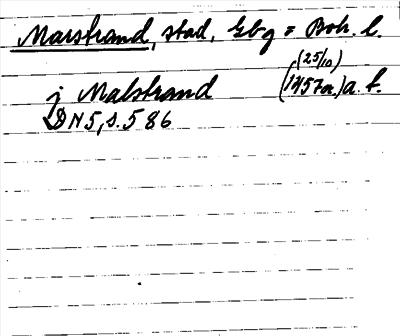 Marstrand, stad, Gbg o Boh. l.
(25/10)
j Malstrand (1457 or.) a. f.
DN 5, s. 586